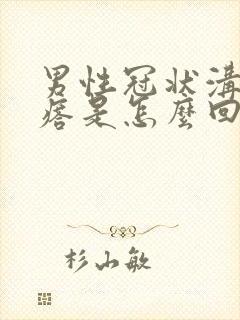 男性冠状溝
痞是怎麼回
杉山敏